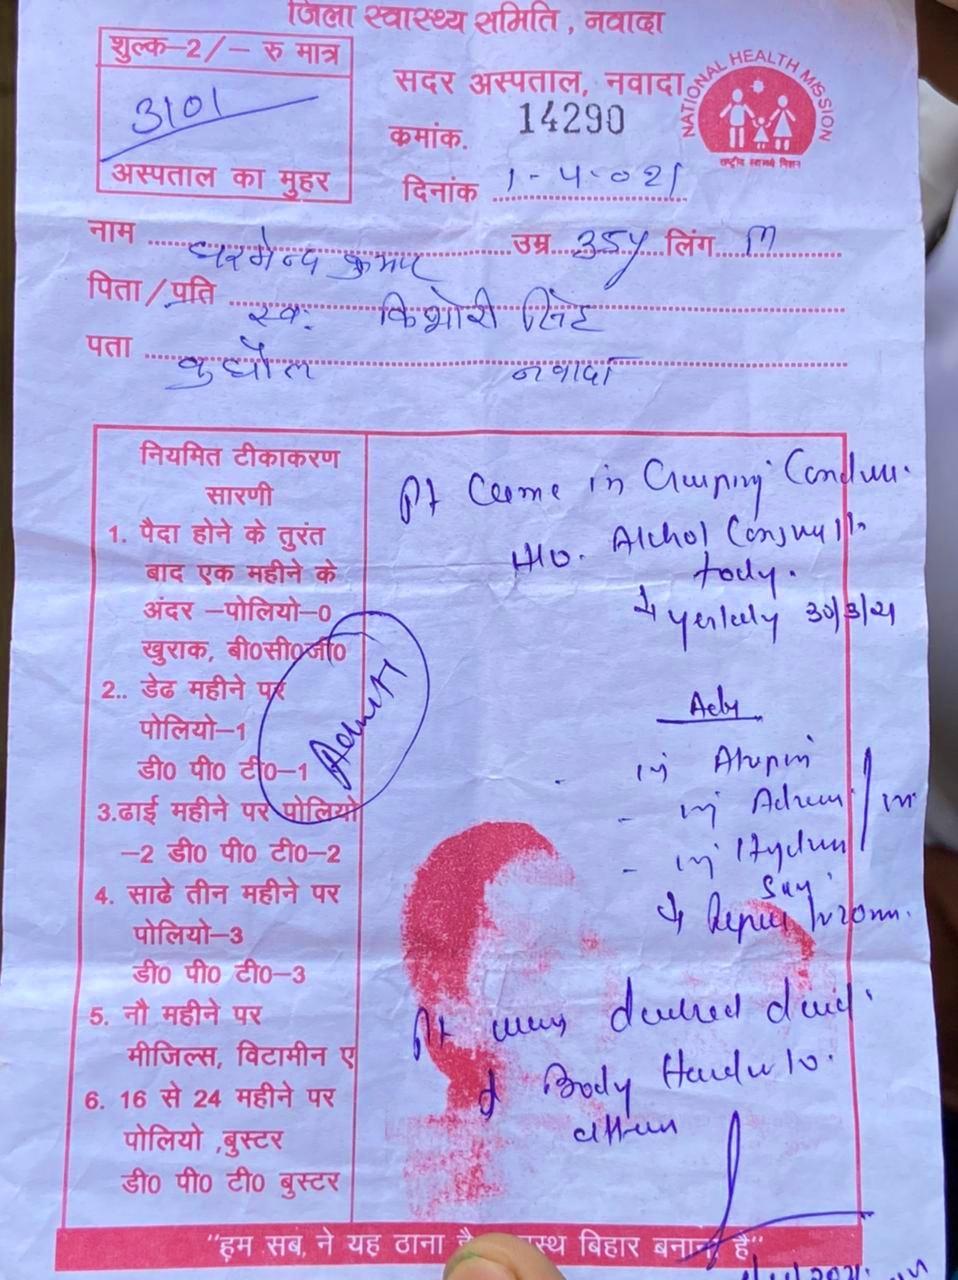 जिला स्वास्थ्य समिति, नवादा
शुल्क-2/- रु मात्र
3101
अस्पताल का मुहर
सदर अस्पताल, नवादा
NATIONAL HEALTH MISSION
राष्ट्रीय स्वास्थ्य मिशन
कमांक. 14290
दिनांक 1-4-021
नाम धरमेन्द्र कुमार उम्र 35y लिंग M
पिता/पति स्व: किशोरी सिंह
पता नवादा
नियमित टीकाकरण
सारणी
1. पैदा होने के तुरंत
बाद एक महीने के
अंदर -पोलियो-0
खुराक, बी0सी0जी0
2.. डेढ महीने पर
पोलियो-1
डी0 पी0 टी0-1
3.ढाई महीने पर पोलियो
-2 डी0 पी0 टी0-2
4. साढे तीन महीने पर
पोलियो-3
डी0 पी0 टी0-3
5. नौ महीने पर
मीजिल्स, विटामीन ए
6. 16 से 24 महीने पर
पोलियो ,बुस्टर
डी0 पी0 टी0 बुस्टर
Admit
Pt came in Gasping Condition
H/o. Alchol
today.
30/3/21
Adv
inj Atropin
inj
inj
Pt was declared dead
Body
"हम सब ने यह ठाना बिहार बनाना है"